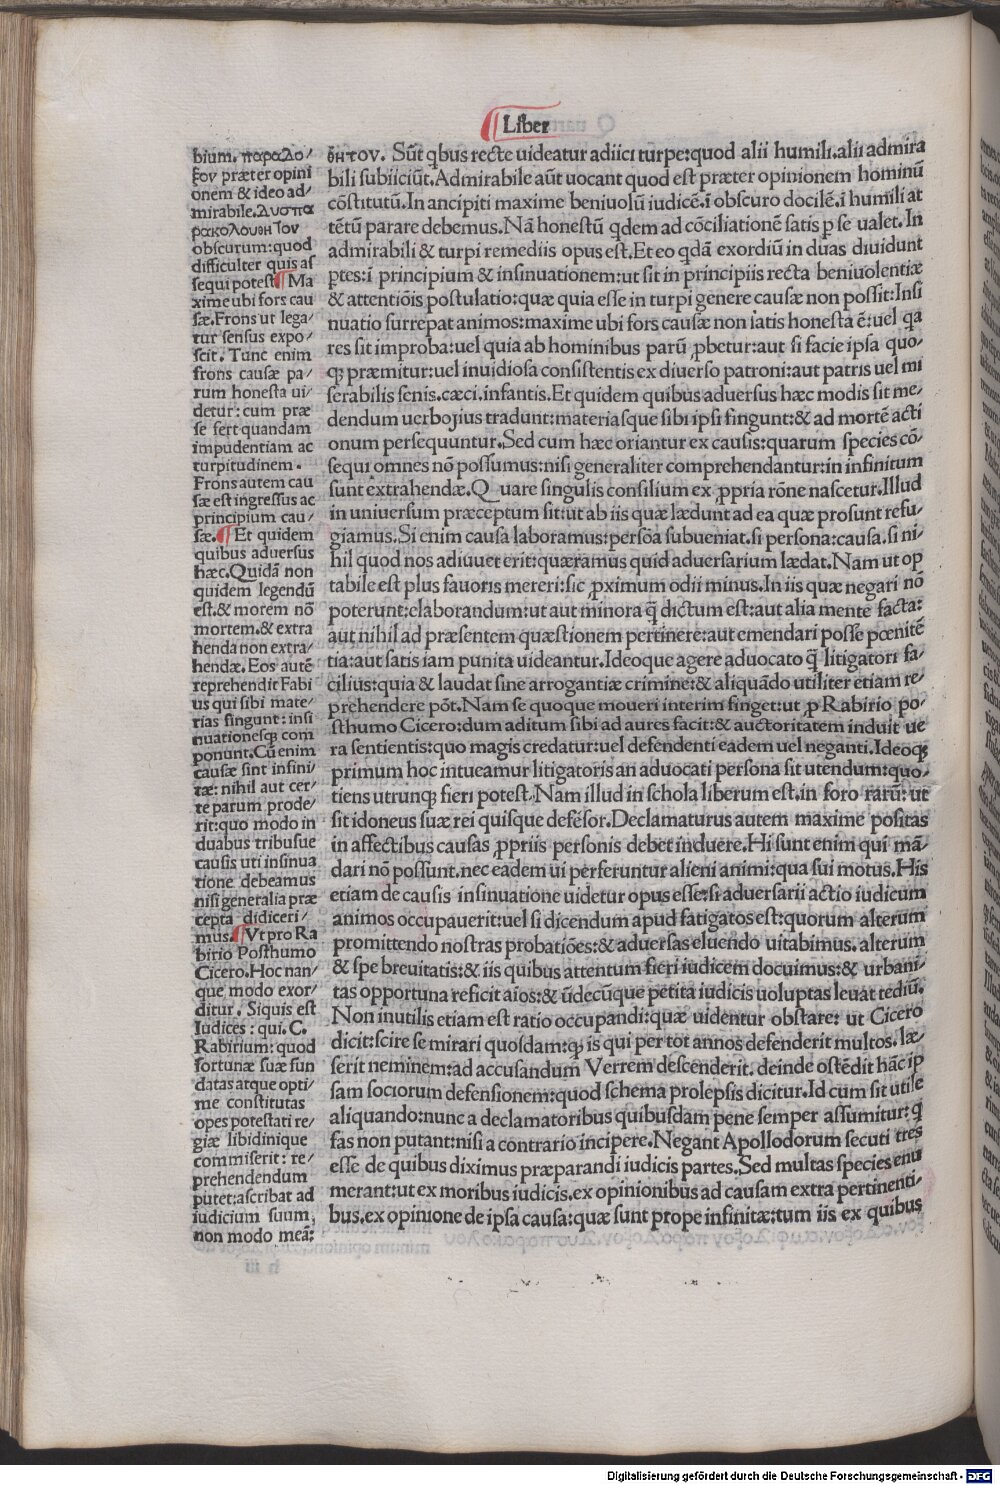 Liber
bium. παραδο/
ξον præter opini
onem & ideo ad/
mirabile. Δυσπα
ρακολουθητον
obscurum: quod
difficulter quis as
sequi potest ¶ Ma
xime ubi fors cau
sæ. Frons ut lega/
tur sensus expo/
scit. Tunc enim
frons causæ pa/
rum honesta ui/
detur: cum præ
se fert quandam
impudentiam ac
turpitudinem.
Frons autem cau
sæ est ingressus ac
principium cau/
sæ. ¶ Et quidem
quibus aduersus
hæc. Quidā non
quidem legendū
est. & morem nō
mortem. & extra
henda non extra/
hendæ. Eos autē
reprehendit Fabi
us qui sibi mate/
rias fingunt: insi
nuationesq; com
ponunt. Cū enim
causæ sint infini/
tæ: nihil aut cer/
te parum prode/
rit: quo modo in
duabus tribusue
causis uti insinua
tione debeamus
nisi generalia præ
cepta didiceri/
mus. ¶ Vt pro Ra
birio Posthumo
Cicero. Hoc nan/
que modo exor/
ditur. Siquis est
Iudices: qui. C.
Rabirium: quod
fortunæ suæ fun
datas atque opti/
me constitutas
opes potestati re/
giæ libidinique
commiserit: re/
prehendendum
putet: ascribat ad
iudicium suum,
non modo meā:
θητον. Sūt qbus recte uideatur adiici turpe: quod alii humili. alii admira
bili subiiciūt. Admirabile aūt uocant quod est præter opinionem hominū
cōstitutū. In ancipiti maxime beniuolū iudicē. ī obscuro docilē. ī humili at
tētū parare debemus. Nā honestū qdem ad cōciliationē satis p se ualet. In
admirabili & turpi remediis opus est. Et eo qdā exordiū in duas diuidunt
ptes: ī principium & insinuationem: ut sit in principiis recta beniuolentiæ
& attentiōis postulatio: quæ quia esse in turpi genere causæ non possit: Insi
nuatio surrepat animos: maxime ubi fors causæ non īatis honesta ē: uel qa
res sit improba: uel quia ab hominibus parū pbetur: aut si facie ipsa quo/
q; præmitur: uel inuidiosa consistentis ex diuerso patroni: aut patris uel mi
serabilis senis. cæci. infantis. Et quidem quibus aduersus hæc modis sit me/
dendum uerbosius tradunt: materiasque sibi ipsi fingunt: & ad mortē acti
onum persequuntur. Sed cum hæc oriantur ex causis: quarum species cō/
sequi omnes nō possumus: nisi generaliter comprehendantur: in infinitum
sunt extrahendæ. Quare singulis consilium ex ppria rōne nascetur. Illud
in uniuersum præceptum sit: ut ab iis quæ lædunt ad ea quæ prosunt refu/
giamus. Si enim causa laboramus: persōa subueniat. si persona: causa. si ni/
hil quod nos adiuuet erit: quæramus quid aduersarium lædat. Nam ut op
tabile est plus fauoris mereri: sic pximum odii minus. In iis quæ negari nō
poterunt: elaborandum: ut aut minora q̄ dictum est: aut alia mente facta:
aut nihil ad præsentem quæstionem pertinere: aut emendari posse pœnitē
tia: aut satis iam punita uideantur. Ideoque agere aduocato q̄ litigatori fa/
cilius: quia & laudat sine arrogantiæ crimine: & aliquādo utiliter etiam re/
prehendere pōt. Nam se quoque moueri interim finget: ut p Rabirio po/
sthumo Cicero: dum aditum sibi ad aures facit: & auctoritatem induit ue
ra sentientis: quo magis credatur: uel defendenti eadem uel neganti. Ideoq;
primum hoc intueamur litigatoris an aduocati persona sit utendum: quo/
tiens utrunq; fieri potest. Nam illud in schola liberum est. in foro rarū: ut
sit idoneus suæ rei quisque defēsor. Declamaturus autem maxime positas
in affectibus causas ppriis personis debet induere. Hi sunt enim qui mā/
dari nō possunt. nec eadem ui perferuntur alieni animi: qua sui motus. His
etiam de causis insinuatione uidetur opus esse: si aduersarii actio iudicum
animos occupauerit: uel si dicendum apud fatigatos est: quorum alterum
promittendo nostras probatiōes: & aduersas eluendo uitabimus. alterum
& spe breuitatis: & iis quibus attentum fieri iudicem docuimus: & urbani/
tas opportuna reficit aīos: & ūdecūque petita iudicis uoluptas leuat tediū.
Non inutilis etiam est ratio occupandi: quæ uidentur obstare: ut Cicero
dicit: scire se mirari quosdam: q; is qui per tot annos defenderit multos. læ/
serit neminem: ad accusandum Verrem descenderit. deinde ostēdit hāc ip
sam sociorum defensionem: quod schema prolepsis dicitur. Id cum sit utile
aliquando: nunc a declamatoribus quibusdam pene semper assumitur: q
fas non putant: nisi a contrario incipere. Negant Apollodorum secuti tres
esse de quibus diximus præparandi iudicis partes. Sed multas species enu
merant: ut ex moribus iudicis. ex opinionibus ad causam extra pertinenti/
bus. ex opinione de ipsa causa: quæ sunt prope infinitæ: tum iis ex quibus
Digitalisierung gefördert durch die Deutsche Forschungsgemeinschaft - DFG